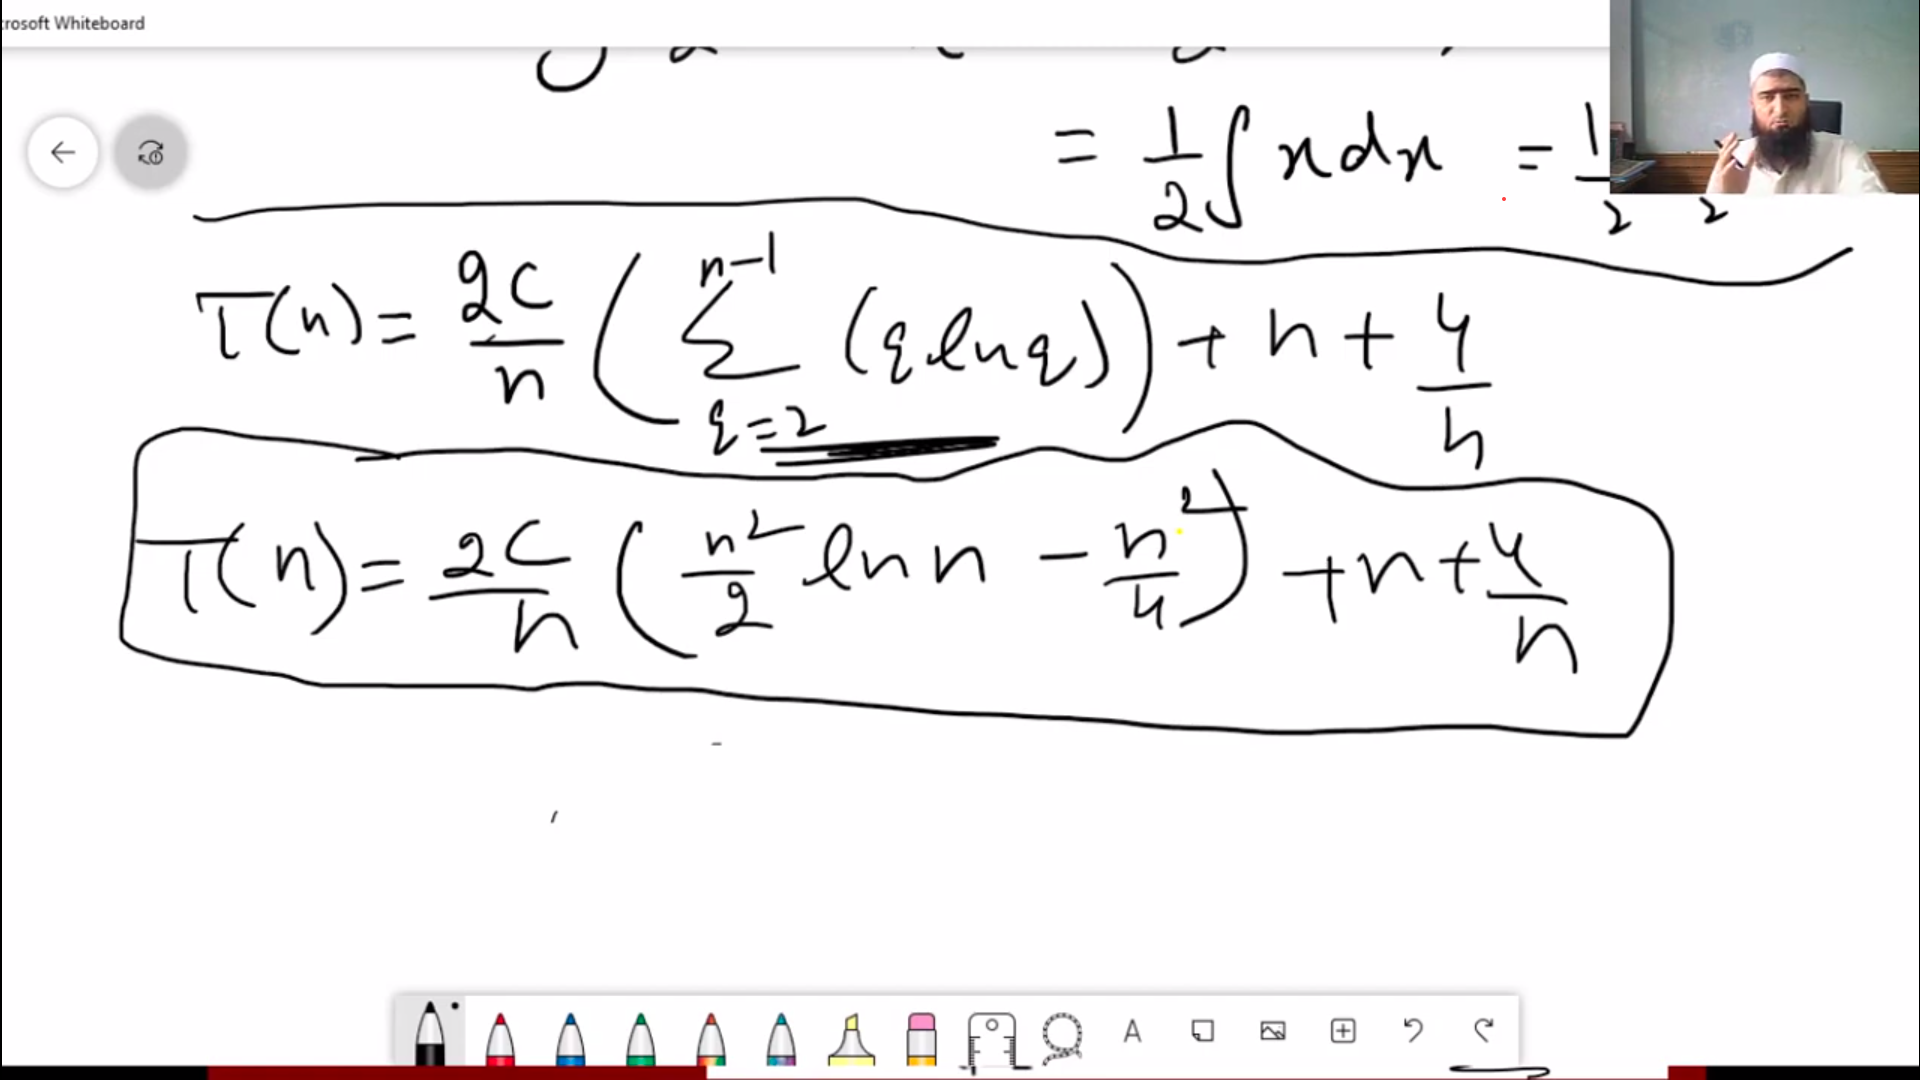 crosoft Whiteboard
= 1/2 ∫ x dx = 1
2 2
T(n) = 2c/n ( ∑_{q=2}^{n-1} (q ln q) ) + n + 4/n
T(n) = 2c/n ( n²/2 ln n - n²/4 ) + n + 4/n
A